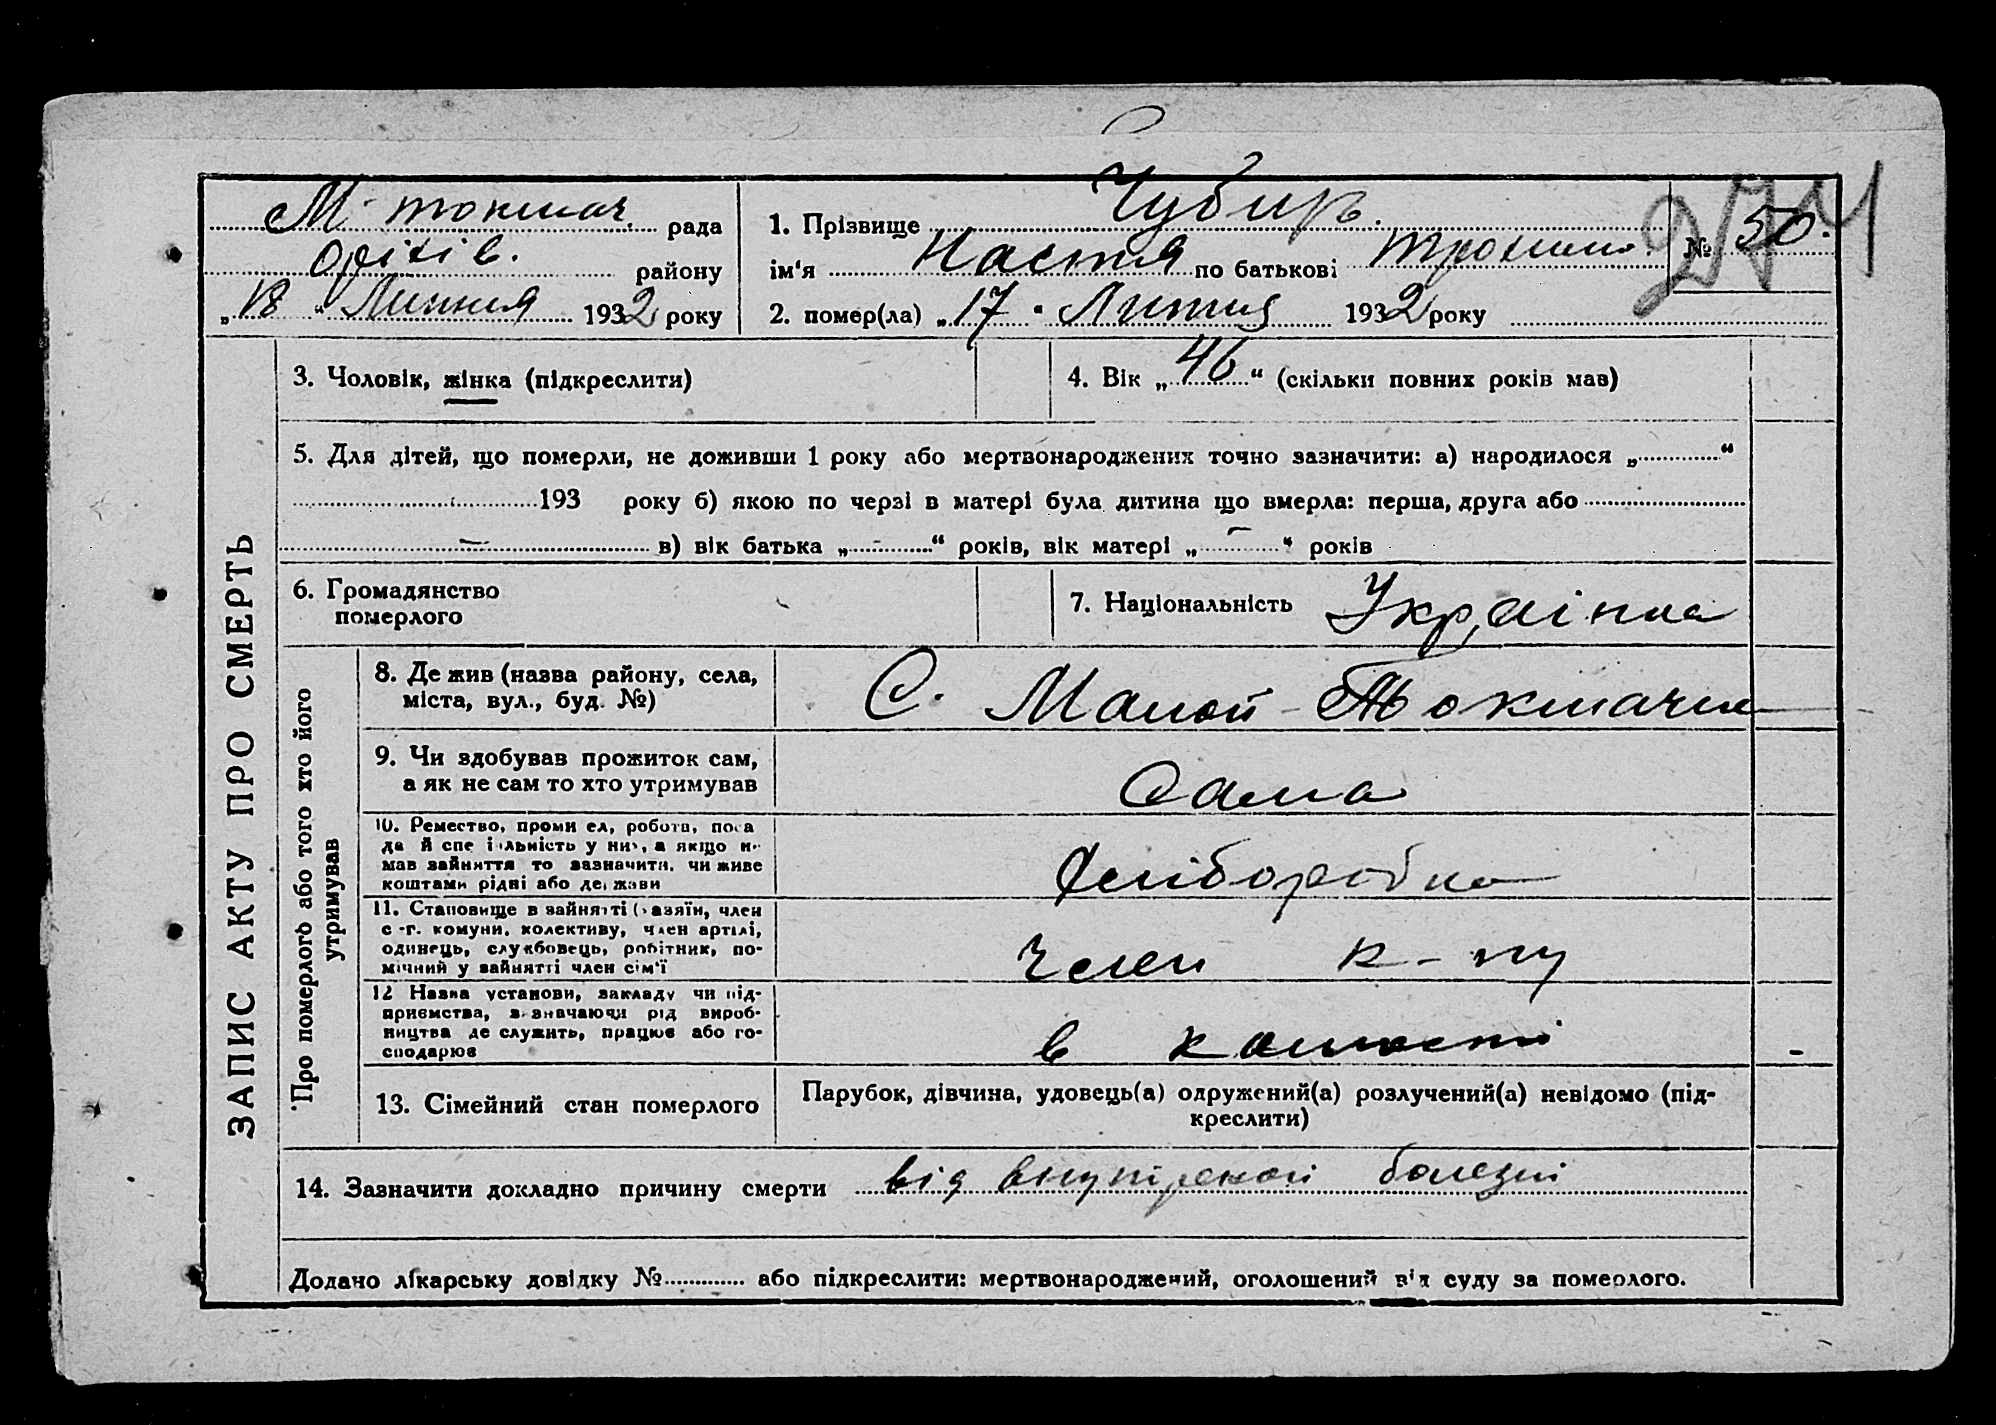 М-токмач. рада
Оріхів. району
„18“ Липня 1932 року
1. Прізвище Чубирь.
ім‘я Настя по батькові Трохим.
№ 50.
274
2. помер(ла) „17“ Липня 1932 року
ЗАПИС АКТУ ПРО СМЕРТЬ
3. Чоловік, жінка (підкреслити)
4. Вік „46“ (скільки повних років мав)
5. Для дітей, що померли, не доживши 1 року або мертвонароджених точно зазначити: а) народилося „ “
193 року б) якою по черзі в матері була дитина що вмерла: перша, друга або
– в) вік батька „ - “ років, вік матері „ - “ років
6. Громадянство
померлого
7. Національність Українка
Про померлого або того хто його
утримував
8. Де жив (назва району, села,
міста, вул., буд. №)
С. Малой-Токмачки
9. Чи здобував прожиток сам,
а як не сам то хто утримував
Сама
10. Ремество, проми ел, робота, поса
да й спе і льність у ни , а якщо н
мав зайняття то зазначити, чи живе
коштами рідні або де жави
Хліборобка
11. Становище в зайнятті ( азяїн, член
с -г. комуни, колективу, член артілі,
одинець, службовець, робітник, по-
мічний у зайнятті член сім‘ї
Член к-пу
12 Назва установи, закладу чи під-
приємства, з значаючи рід вироб-
ництва де служить, працює або го-
сподарює
в
-
13. Сімейний стан померлого
Парубок, дівчина, удовець(а) одружений(а) розлучений(а) невідомо (під-
креслити)
14. Зазначити докладно причину смерти від внутірекой болезні
Додано лікарську довідку № або підкреслити: мертвонароджений, оголошений від суду за померлого.